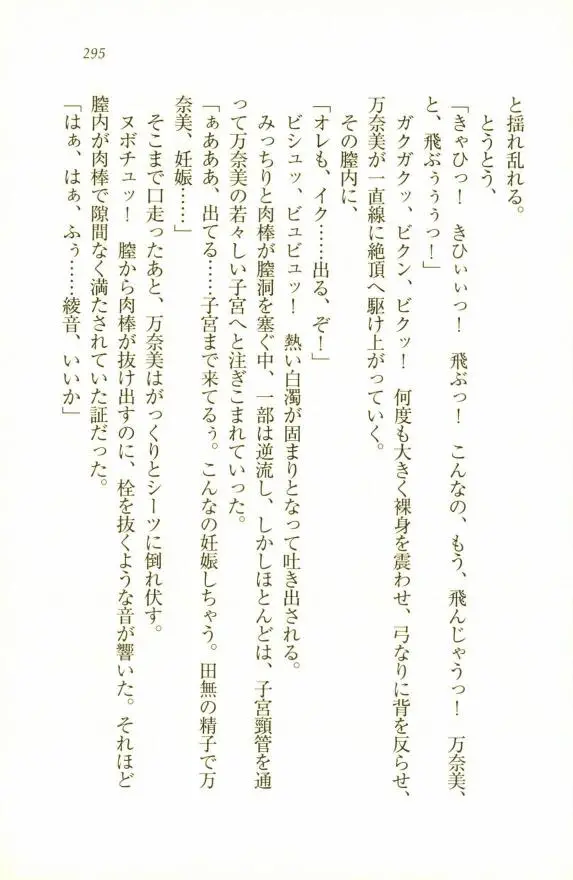 295
と揺れ乱れる。
とうとう、
「きゃひっ！　きひぃぃっ！　飛ぶっ！　こんなの、もう、飛んじゃうっ！　万奈美、
と、飛ぶぅぅぅっ！」
ガクガクッ、ビクン、ビクッ！　何度も大きく裸身を震わせ、弓なりに背を反らせ、
万奈美が一直線に絶頂へ駆け上がっていく。
その膣内に、
「オレも、イク……出る、ぞ！」
ビシュッ、ビュビュッ！　熱い白濁が固まりとなって吐き出される。
みっちりと肉棒が膣洞を塞ぐ中、一部は逆流し、しかしほとんどは、子宮頸管を通
って万奈美の若々しい子宮へと注ぎこまれていった。
「ぁあああ、出てる……子宮まで来てるぅ。こんなの妊娠しちゃう。田無の精子で万
奈美、妊娠……」
そこまで口走ったあと、万奈美はがっくりとシーツに倒れ伏す。
ヌボチュッ！　膣から肉棒が抜け出すのに、栓を抜くような音が響いた。それほど
膣内が肉棒で隙間なく満たされていた証だった。
「はぁ、はぁ、ふぅ……綾音、いいか」